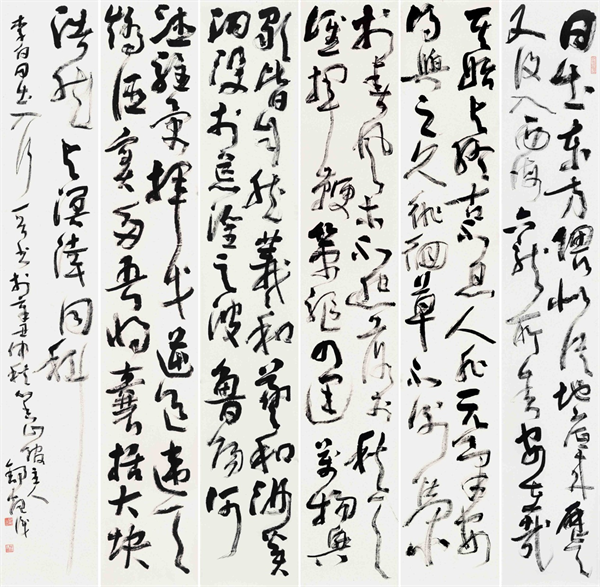 日出東方隈似從地底來歷天
又復入西海六龍所舍安在哉
其始与終古不息人非元氣安
得與之久徘徊草不謝榮
於春風木不怨落於秋天
誰揮鞭策驅四運萬物興
歇皆自然羲和羲和汝奚
汩沒於荒淫之波魯陽何
德駐景揮戈逆道違天
矯誣實多吾將囊括大块
浩然与溟涬同科
李白日出入行一首書於辛丑仲秋山館主人